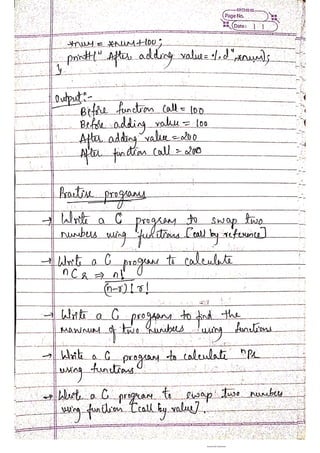 Page No.
Date: | |
*num = *num+100;
printf(" After adding value= %d",*num);
}
Output:-
Before function Call = 100
Before adding value = 100
After adding value = 200
After function Call = 200
Practise programs
→ Write a C program to swap two
numbers using functions [call by reference]
→ Write a C program to calculate
nCR ⇒ n!
(n-r)! r!
→ Write a C program to find the
maximum of two numbers using functions
→ Write a C program to calculate nPr
using functions
→ Write a C program to swap two numbers
using function [call by value].